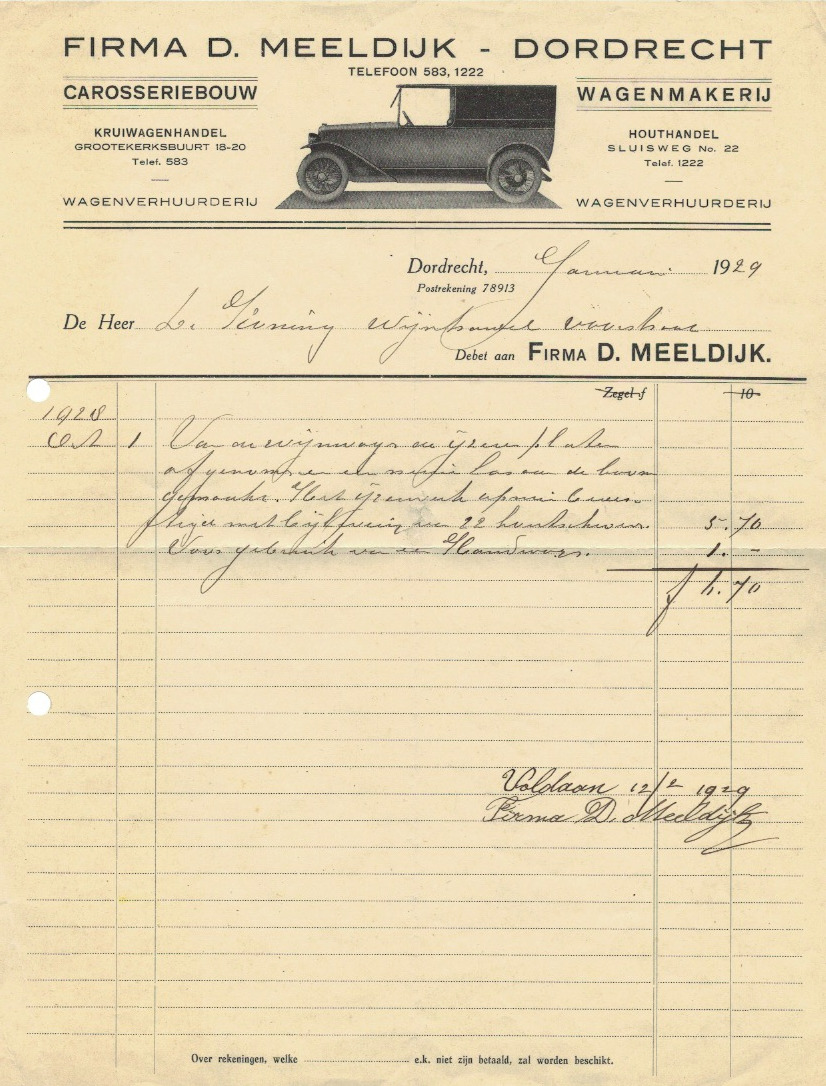 FIRMA D. MEELDIJK - DORDRECHT
TELEFOON 583, 1222
CAROSSERIEBOUW
WAGENMAKERIJ
KRUIWAGENHANDEL
GROOTEKERKSBUURT 18-20
Telef. 583
HOUTHANDEL
SLUISWEG No. 22
Telef. 1222
WAGENVERHUURDERIJ
WAGENVERHUURDERIJ
Dordrecht, Januari 1929
Postrekening 78913
De Heer wijnhandel voorstraat
Debet aan FIRMA D. MEELDIJK.
Zegel f 10
1928
Oct 1 Van de wijnwagen de ijzeren platen
afgenomen en een nieuwe las aan de boom
gemaakt. Het ijzerwerk opnieuw beves-
tigd met en 22 houtschroeven. 5.70
Voor gebruik van een Handwagen. 1. -
f 6.70
Voldaan 12/2 1929
Firma D. Meeldijk
Over rekeningen, welke e.k. niet zijn betaald, zal worden beschikt.